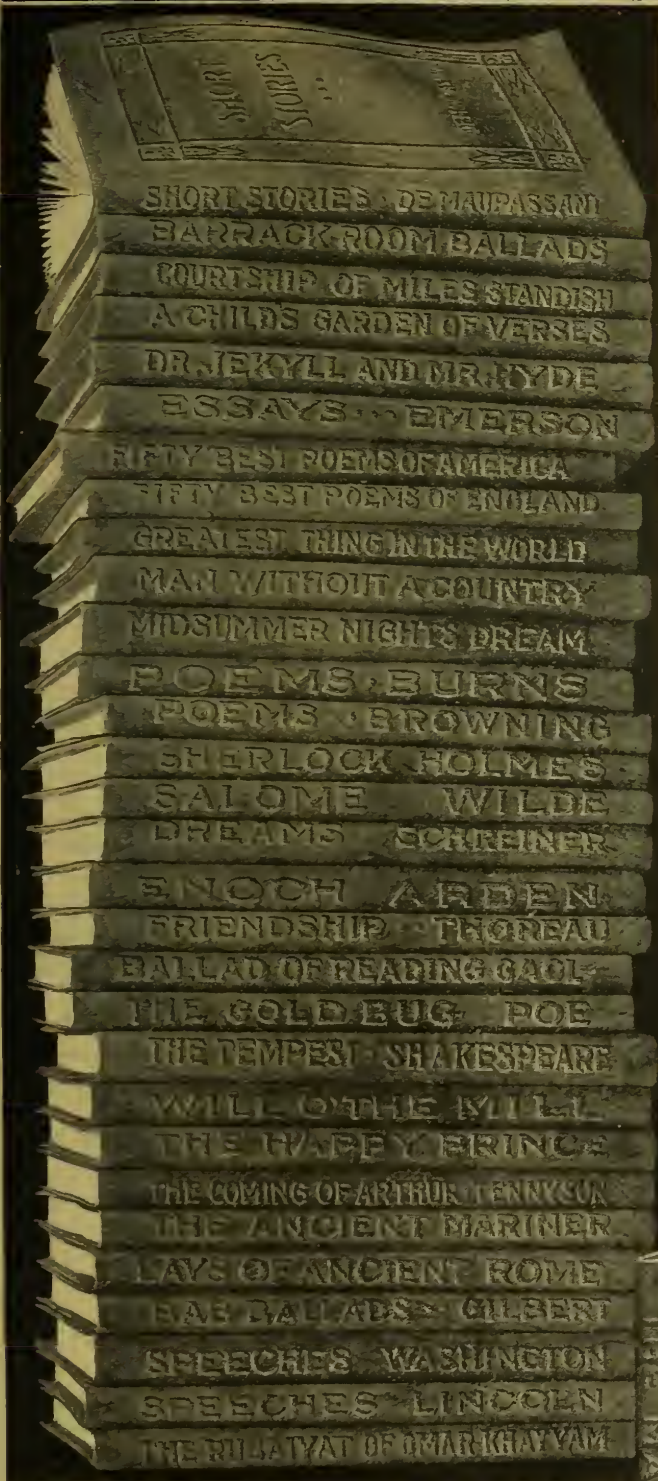 SHORT
STORIES
SHORT STORIES · DE MAUPASSANT
BARRACK-ROOM BALLADS
COURTSHIP OF MILES STANDISH
A CHILD'S GARDEN OF VERSES
DR. JEKYLL AND MR. HYDE
ESSAYS · EMERSON
FIFTY BEST POEMS OF AMERICA
FIFTY BEST POEMS OF ENGLAND
GREATEST THING IN THE WORLD
MAN WITHOUT A COUNTRY
MIDSUMMER NIGHTS DREAM
POEMS · BURNS
POEMS · BROWNING
SHERLOCK HOLMES
SALOME WILDE
DREAMS SCHREINER
ENOCH ARDEN
FRIENDSHIP · THOREAU
BALLAD OF READING GAOL
THE GOLD BUG POE
THE TEMPEST · SHAKESPEARE
WILL O' THE MILL
THE HAPPY PRINCE
THE COMING OF ARTHUR TENNYSON
THE ANCIENT MARINER
LAYS OF ANCIENT ROME
BAB BALLADS · GILBERT
SPEECHES WASHINGTON
SPEECHES LINCOLN
THE RUBAIYAT OF OMAR KHAYYAM